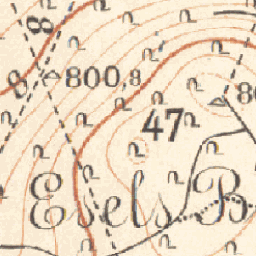 8
8
800,8
80
47
Esels B